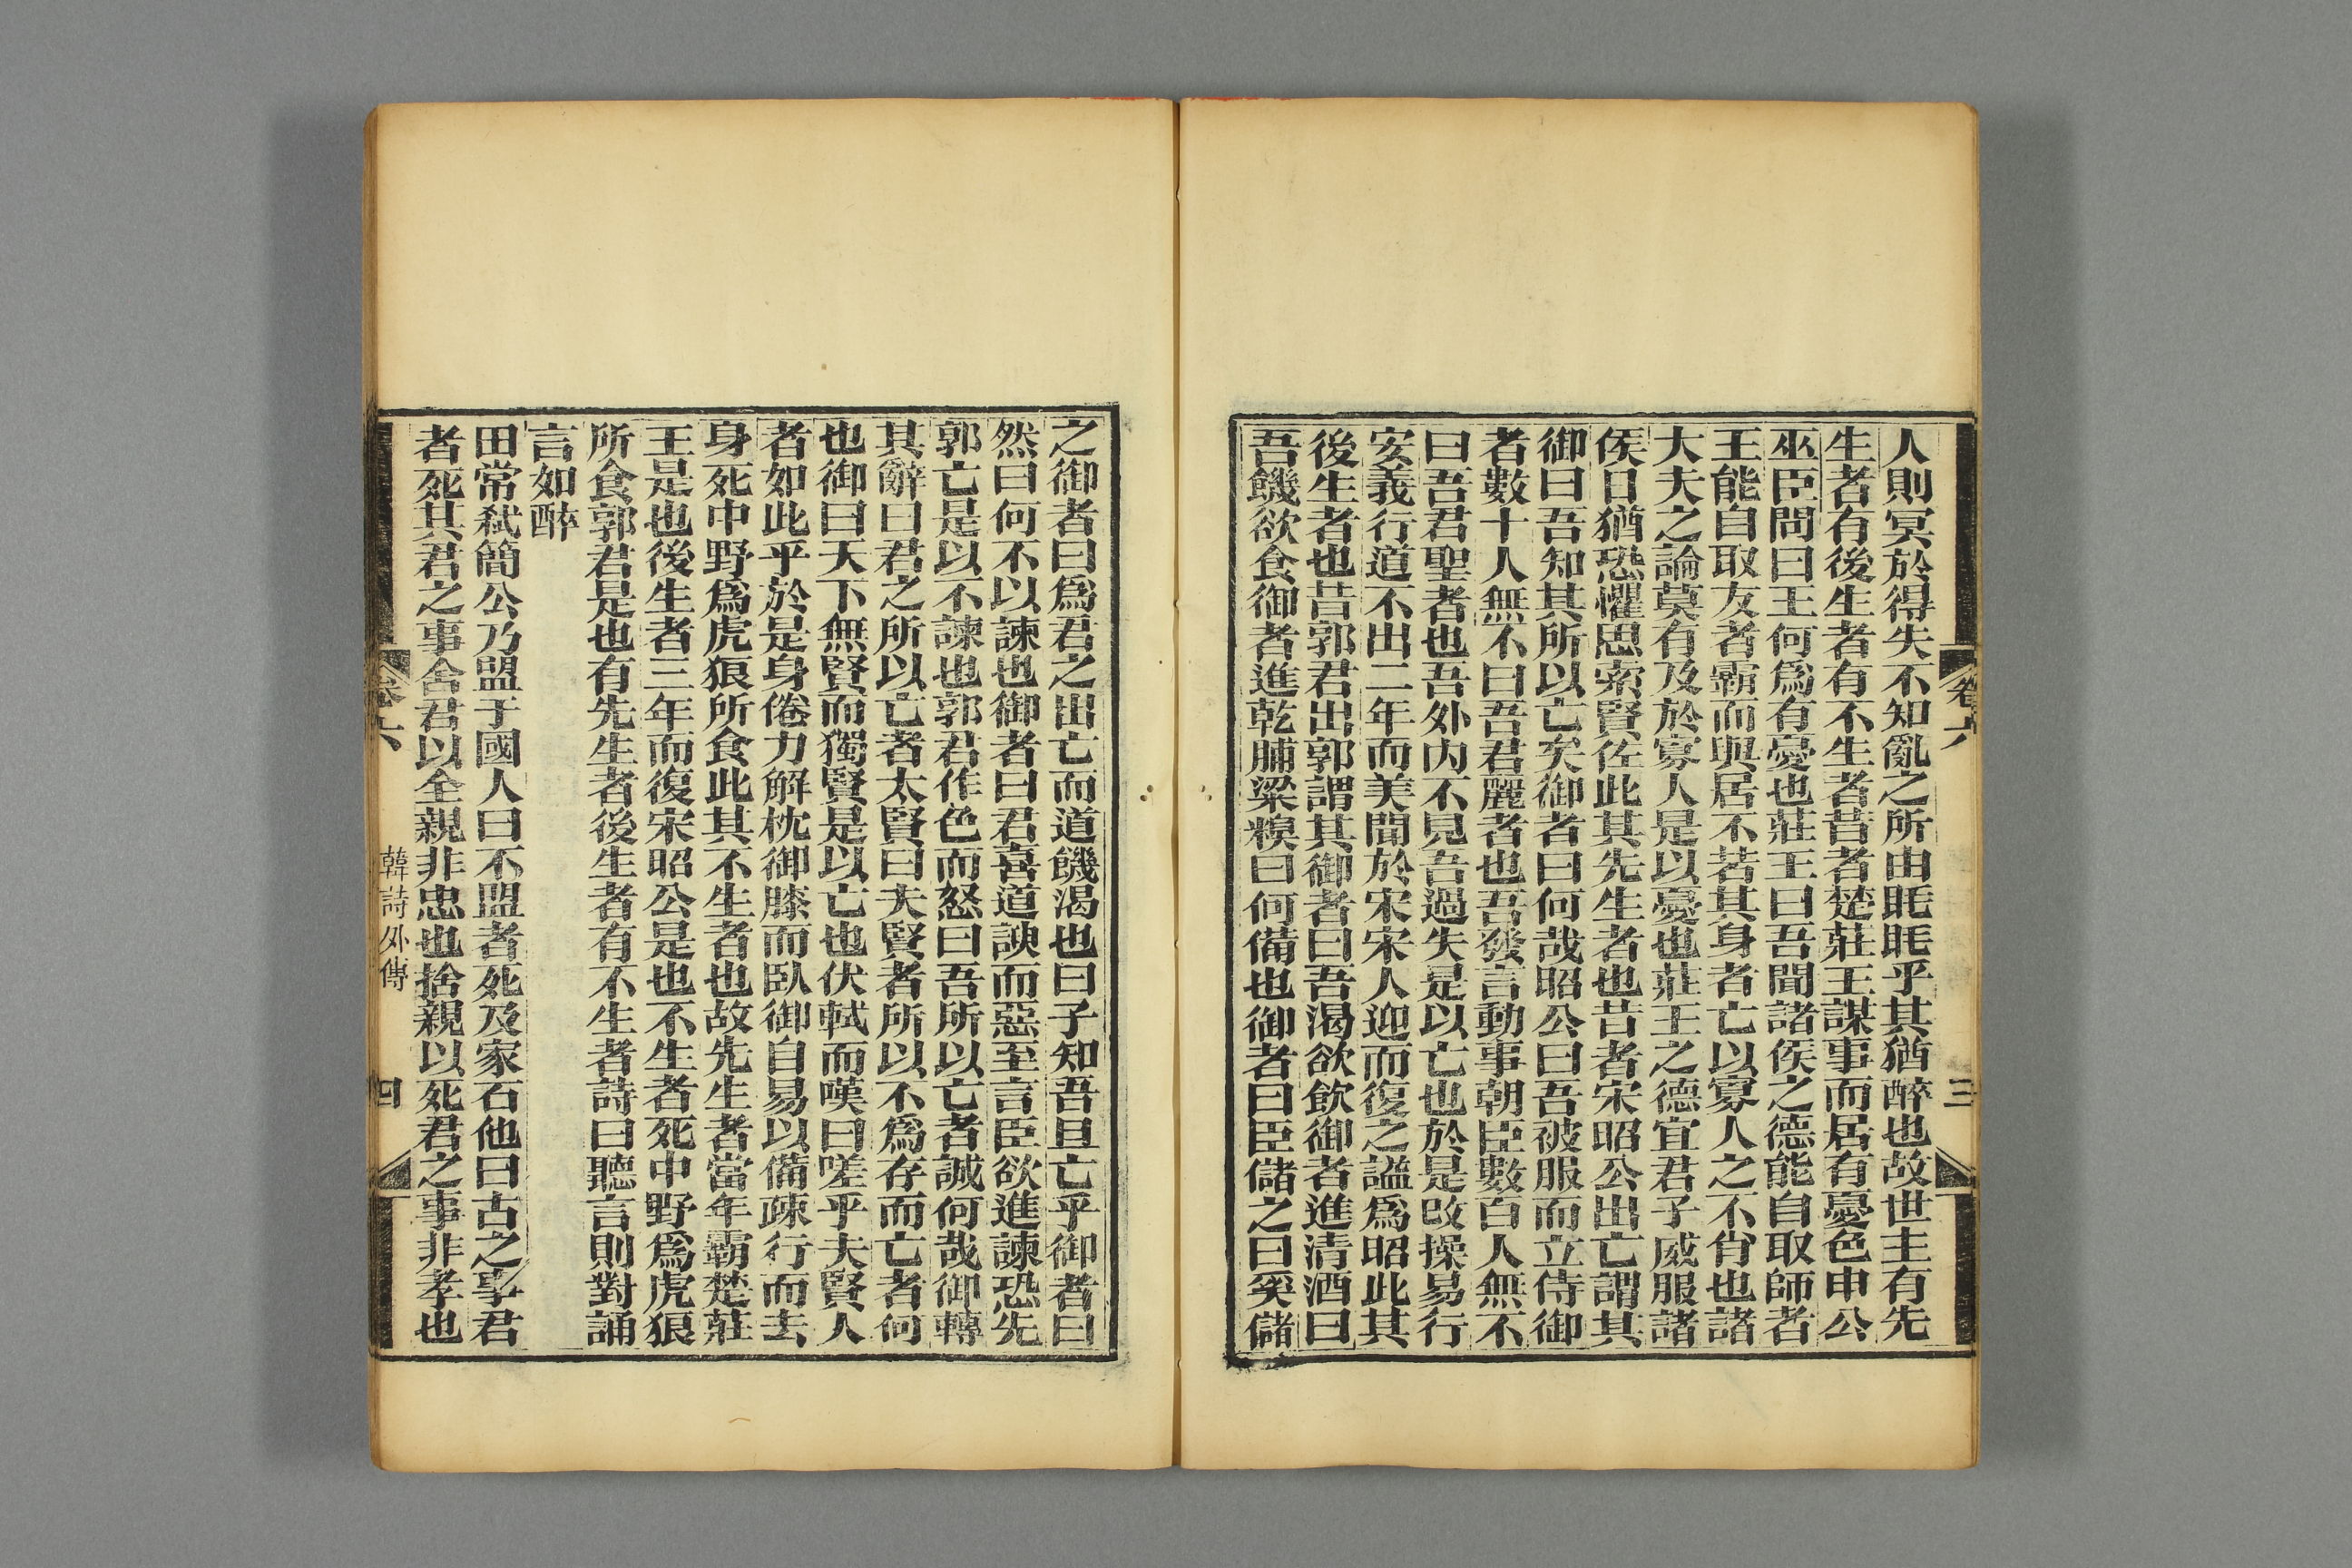 卷六
三
人則冥於得失不知亂之所由眊眊乎其猶醉也故世主有先
生者有後生者有不生者昔者楚莊王謀事而居有憂色申公
巫臣問曰王何爲有憂也莊王曰吾聞諸侯之德能自取師者
王能自取友者霸而與居不若其身者亡以寡人之不肖也諸
大夫之論莫有及於寡人是以憂也莊王之德宜君子威服諸
侯日猶恐懼思索賢佐此其先生者也昔者宋昭公出亡謂其
御曰吾知其所以亡矣御者曰何哉昭公曰吾被服而立侍御
者數十人無不曰吾君麗者也吾發言動事朝臣數百人無不
曰吾君聖者也吾外內不見吾過失是以亡也於是改操易行
安義行道不出二年而美聞於宋宋人迎而復之諡爲昭此其
後生者也昔郭君出郭謂其御者曰吾渴欲飲御者進清酒曰
吾饑欲食御者進乾脯粱糗曰何備也御者曰臣儲之曰奚儲
之御者曰爲君之出亡而道饑渴也曰子知吾且亡乎御者曰
然曰何不以諫也御者曰君喜道諛而惡至言臣欲進諫恐先
郭亡是以不諫也郭君作色而怒曰吾所以亡者誠何哉御轉
其辭曰君之所以亡者太賢曰夫賢者所以不爲存而亡者何
也御曰天下無賢而獨賢是以亡也伏軾而嘆曰嗟乎夫賢人
者如此乎於是身倦力解枕御膝而臥御自易以備疎行而去
身死中野爲虎狼所食此其不生者也故先生者當年霸楚莊
王是也後生者三年而復宋昭公是也不生者死中野爲虎狼
所食郭君是也有先生者後生者有不生者詩曰聽言則對誦
言如醉
田常弑簡公乃盟于國人曰不盟者死及家石他曰古之事君
者死其君之事舍君以全親非忠也捨親以死君之事非孝也
卷六
韓詩外傳
四